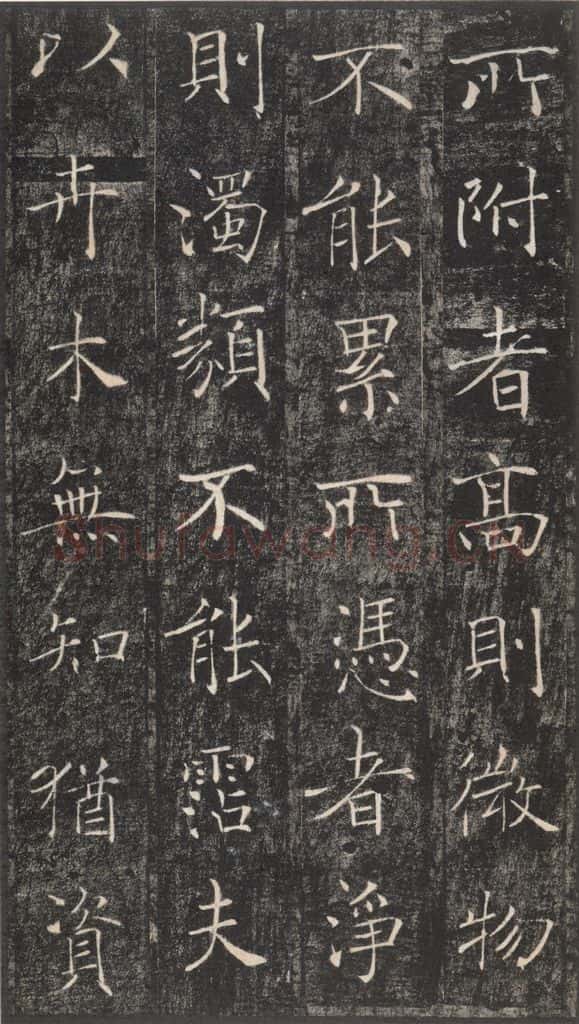 所附者高則微物
不能累所憑者淨
則濁類不能霑夫
以卉木無知猶資
Shufawang.CN